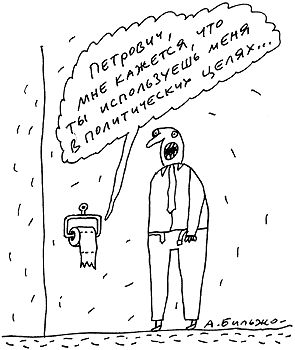 ПЕТРОВИЧ,
МНЕ КАЖЕТСЯ, ЧТО
ТЫ ИСПОЛЬЗУЕШЬ МЕНЯ
В ПОЛИТИЧЕСКИХ ЦЕЛЯХ...
А. БИЛЬЖО-